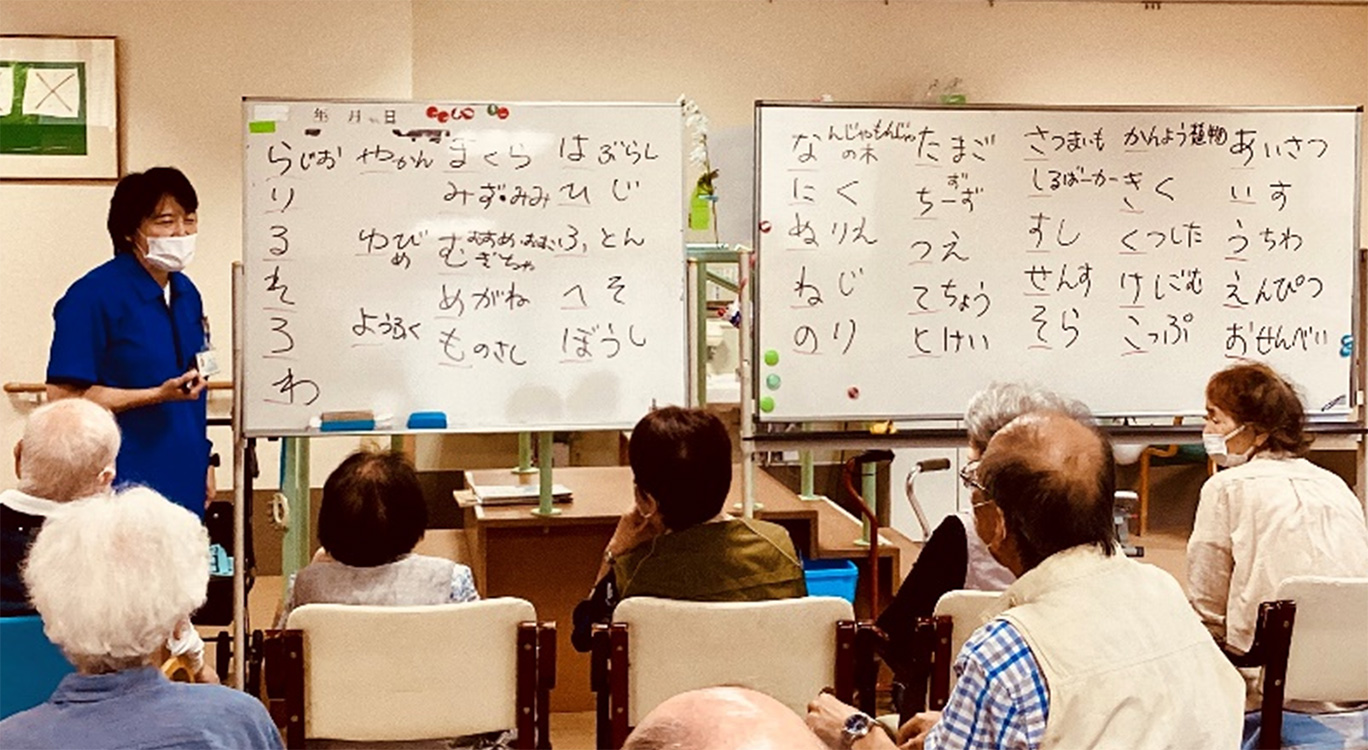 あいさつ
いす
うちわ
えんぴつ
おせんべい
かんよう植物
きく
くつした
けしごむ
こっぷ
さつまいも
しるばーかー
すし
せんす
そら
たまご
ちーず
ず
つえ
てちょう
とけい
なんじゃもんじゃ
の木
にく
ぬりえ
ねじ
のり
年 月 日
はぶらし
ひじ
ふとん
へそ
ぼうし
まくら
みず・みみ
むぎちゃ
めがね
ものさし
やかん
ゆび
め
ようふく
らじお
り
る
れ
ろ
わ